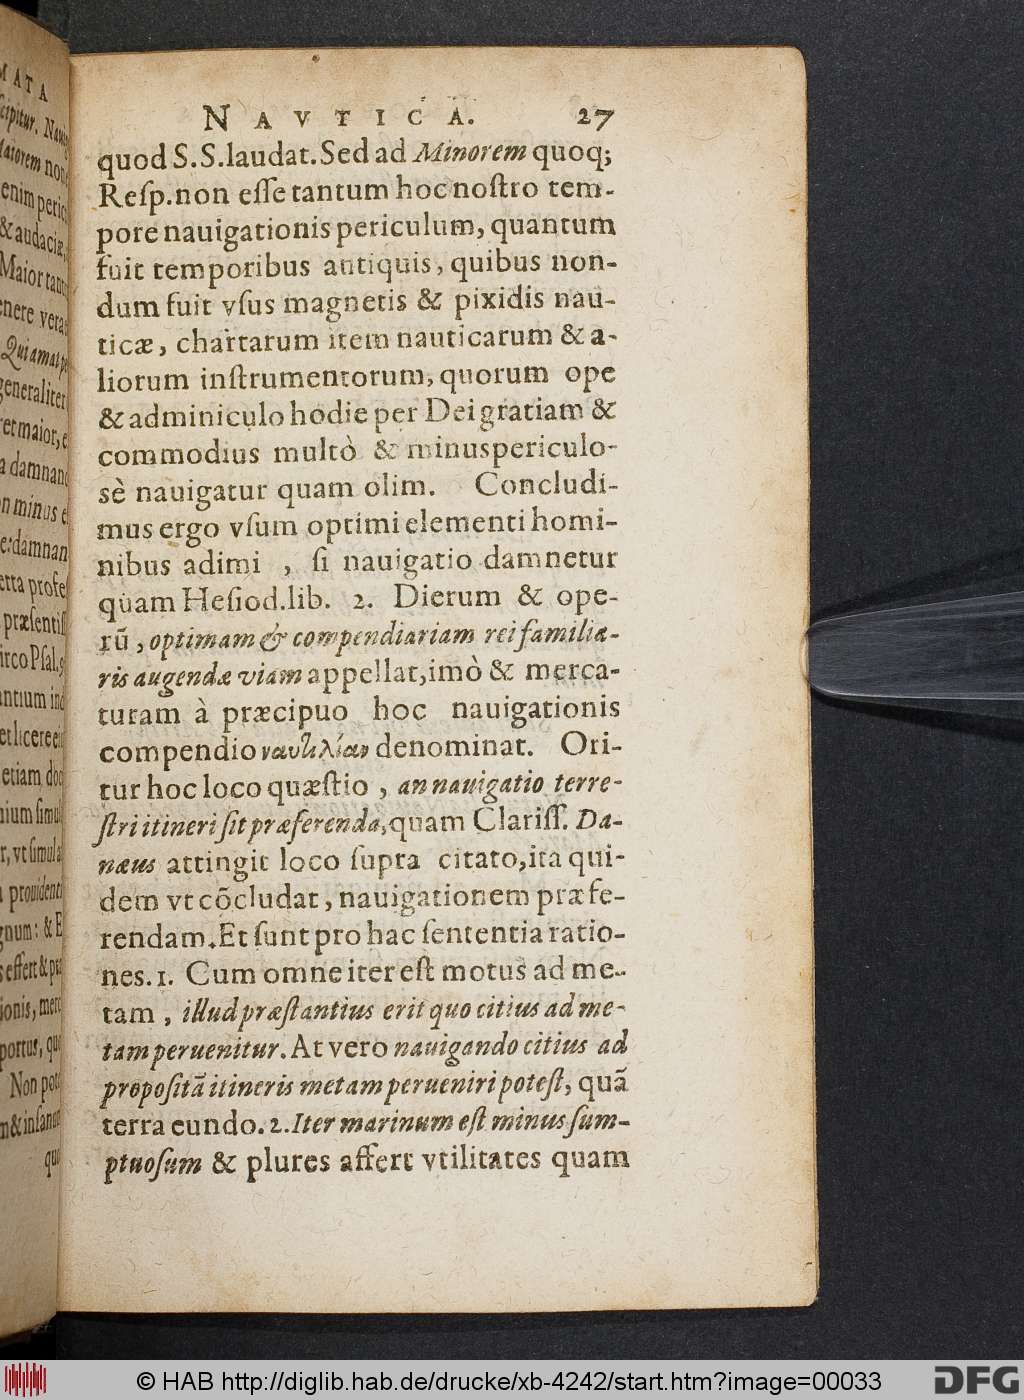 NAVTICA. 27
quod S.S.laudat.Sed ad Minorem quoq;
Reſp.non eſſe tantum hoc noſtro tem-
pore nauigationis periculum, quantum
fuit temporibus antiquis, quibus non-
dum fuit vſus magnetis & pixidis nau-
ticæ, chartarum item nauticarum & a-
liorum inſtrumentorum, quorum ope
& adminiculo hodie per Dei gratiam &
commodius multò & minuspericulo-
sè nauigatur quam olim. Concludi-
mus ergo vſum optimi elementi homi-
nibus adimi , ſi nauigatio damnetur
quam Heſiod.lib. 2. Dierum & ope-
rũ, optimam & compendiariam rei familia-
ris augendæ viam appellat, imò & merca-
turam à præcipuo hoc nauigationis
compendio ναυτιλίαν denominat. Ori-
tur hoc loco quæſtio , an nauigatio terre-
ſtri itineri ſit præferenda, quam Clariſſ. Da-
næus attingit loco ſupra citato, ita qui-
dem vt cõcludat, nauigationem præfe-
rendam. Et ſunt pro hac ſententia ratio-
nes. 1. Cum omne iter eſt motus ad me-
tam , illud præſtantius erit quo citius ad me-
tam peruenitur. At vero nauigando citius ad
propoſitã itineris metam perueniri poteſt, quã
terra eundo. 2. Iter marinum eſt minus ſum-
ptuoſum & plures affert vtilitates quam
MATA
Maiorem non
enim peric
& audaciæ,
Maior tant
enere vera
Qui amat pe
generaliter
ret maior, e
a damnand
n minus e
e: damnan
etta profe
præſentiſ
irco Pſal.
antium ind
et licere
etiam do
nium ſimul
r, vt ſimul a
prouident
gnum: & E
s effert & pra
ionis, merc
portus, qu
Non pot
m & inſanum
qua
© HAB http://diglib.hab.de/drucke/xb-4242/start.htm?image=00033
DFG